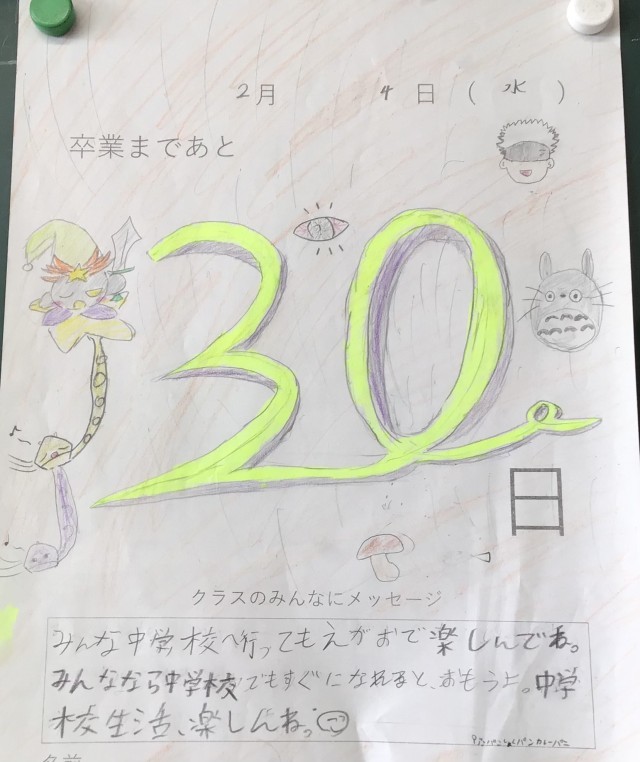 2月 4日（水）
卒業まであと
30
日
クラスのみんなにメッセージ
みんな中学校へ行ってもえがおで楽しんでね。
みんななら中学校でもすぐになれると、おもうよ。中学
校生活、楽しんね。